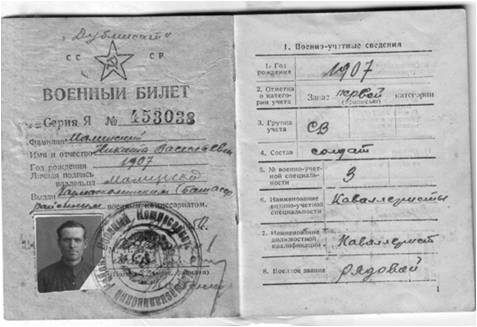 "Дубликат"
СС СР
ВОЕННЫЙ БИЛЕТ
Серия Я № 453038
Фамилия Малинский
Имя и отчество Никита
Год рождения 1907
Личная подпись
владельца
Выдан
районным военным комиссариатом.
1. Военно-учетные сведения
1. Год рождения 1907
2. Отметка о категории учета Запас первой категории
(прописью)
3. Группа учета СВ
4. Состав солдат
5. № военно-учетной специальности 3
6. Наименование военно-учетной специальности Кавалеристы
7. Наименование должностной квалификации Кавалерист
8. Военное звание рядовой
1